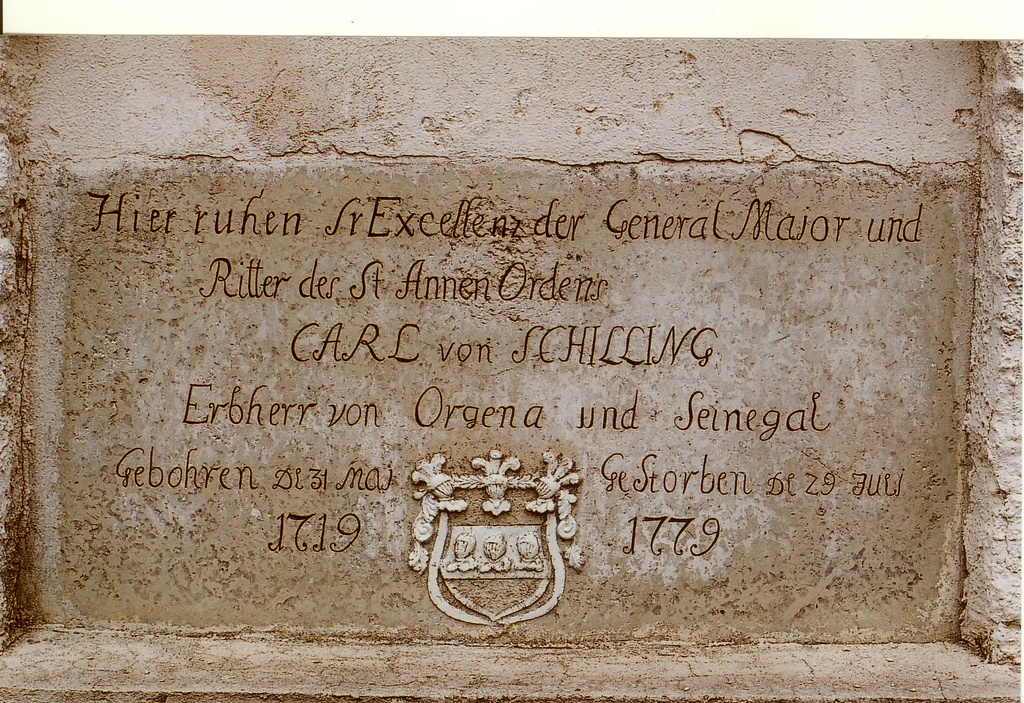 Hier ruhen Sr Excellenz der General Major und
Ritter des St Annen Ordens
CARL von SCHILLING
Erbherr von Orgena und Seinegal
Gebohren DE 31 Mai GeStorben DE 29 Juli
1719 1779